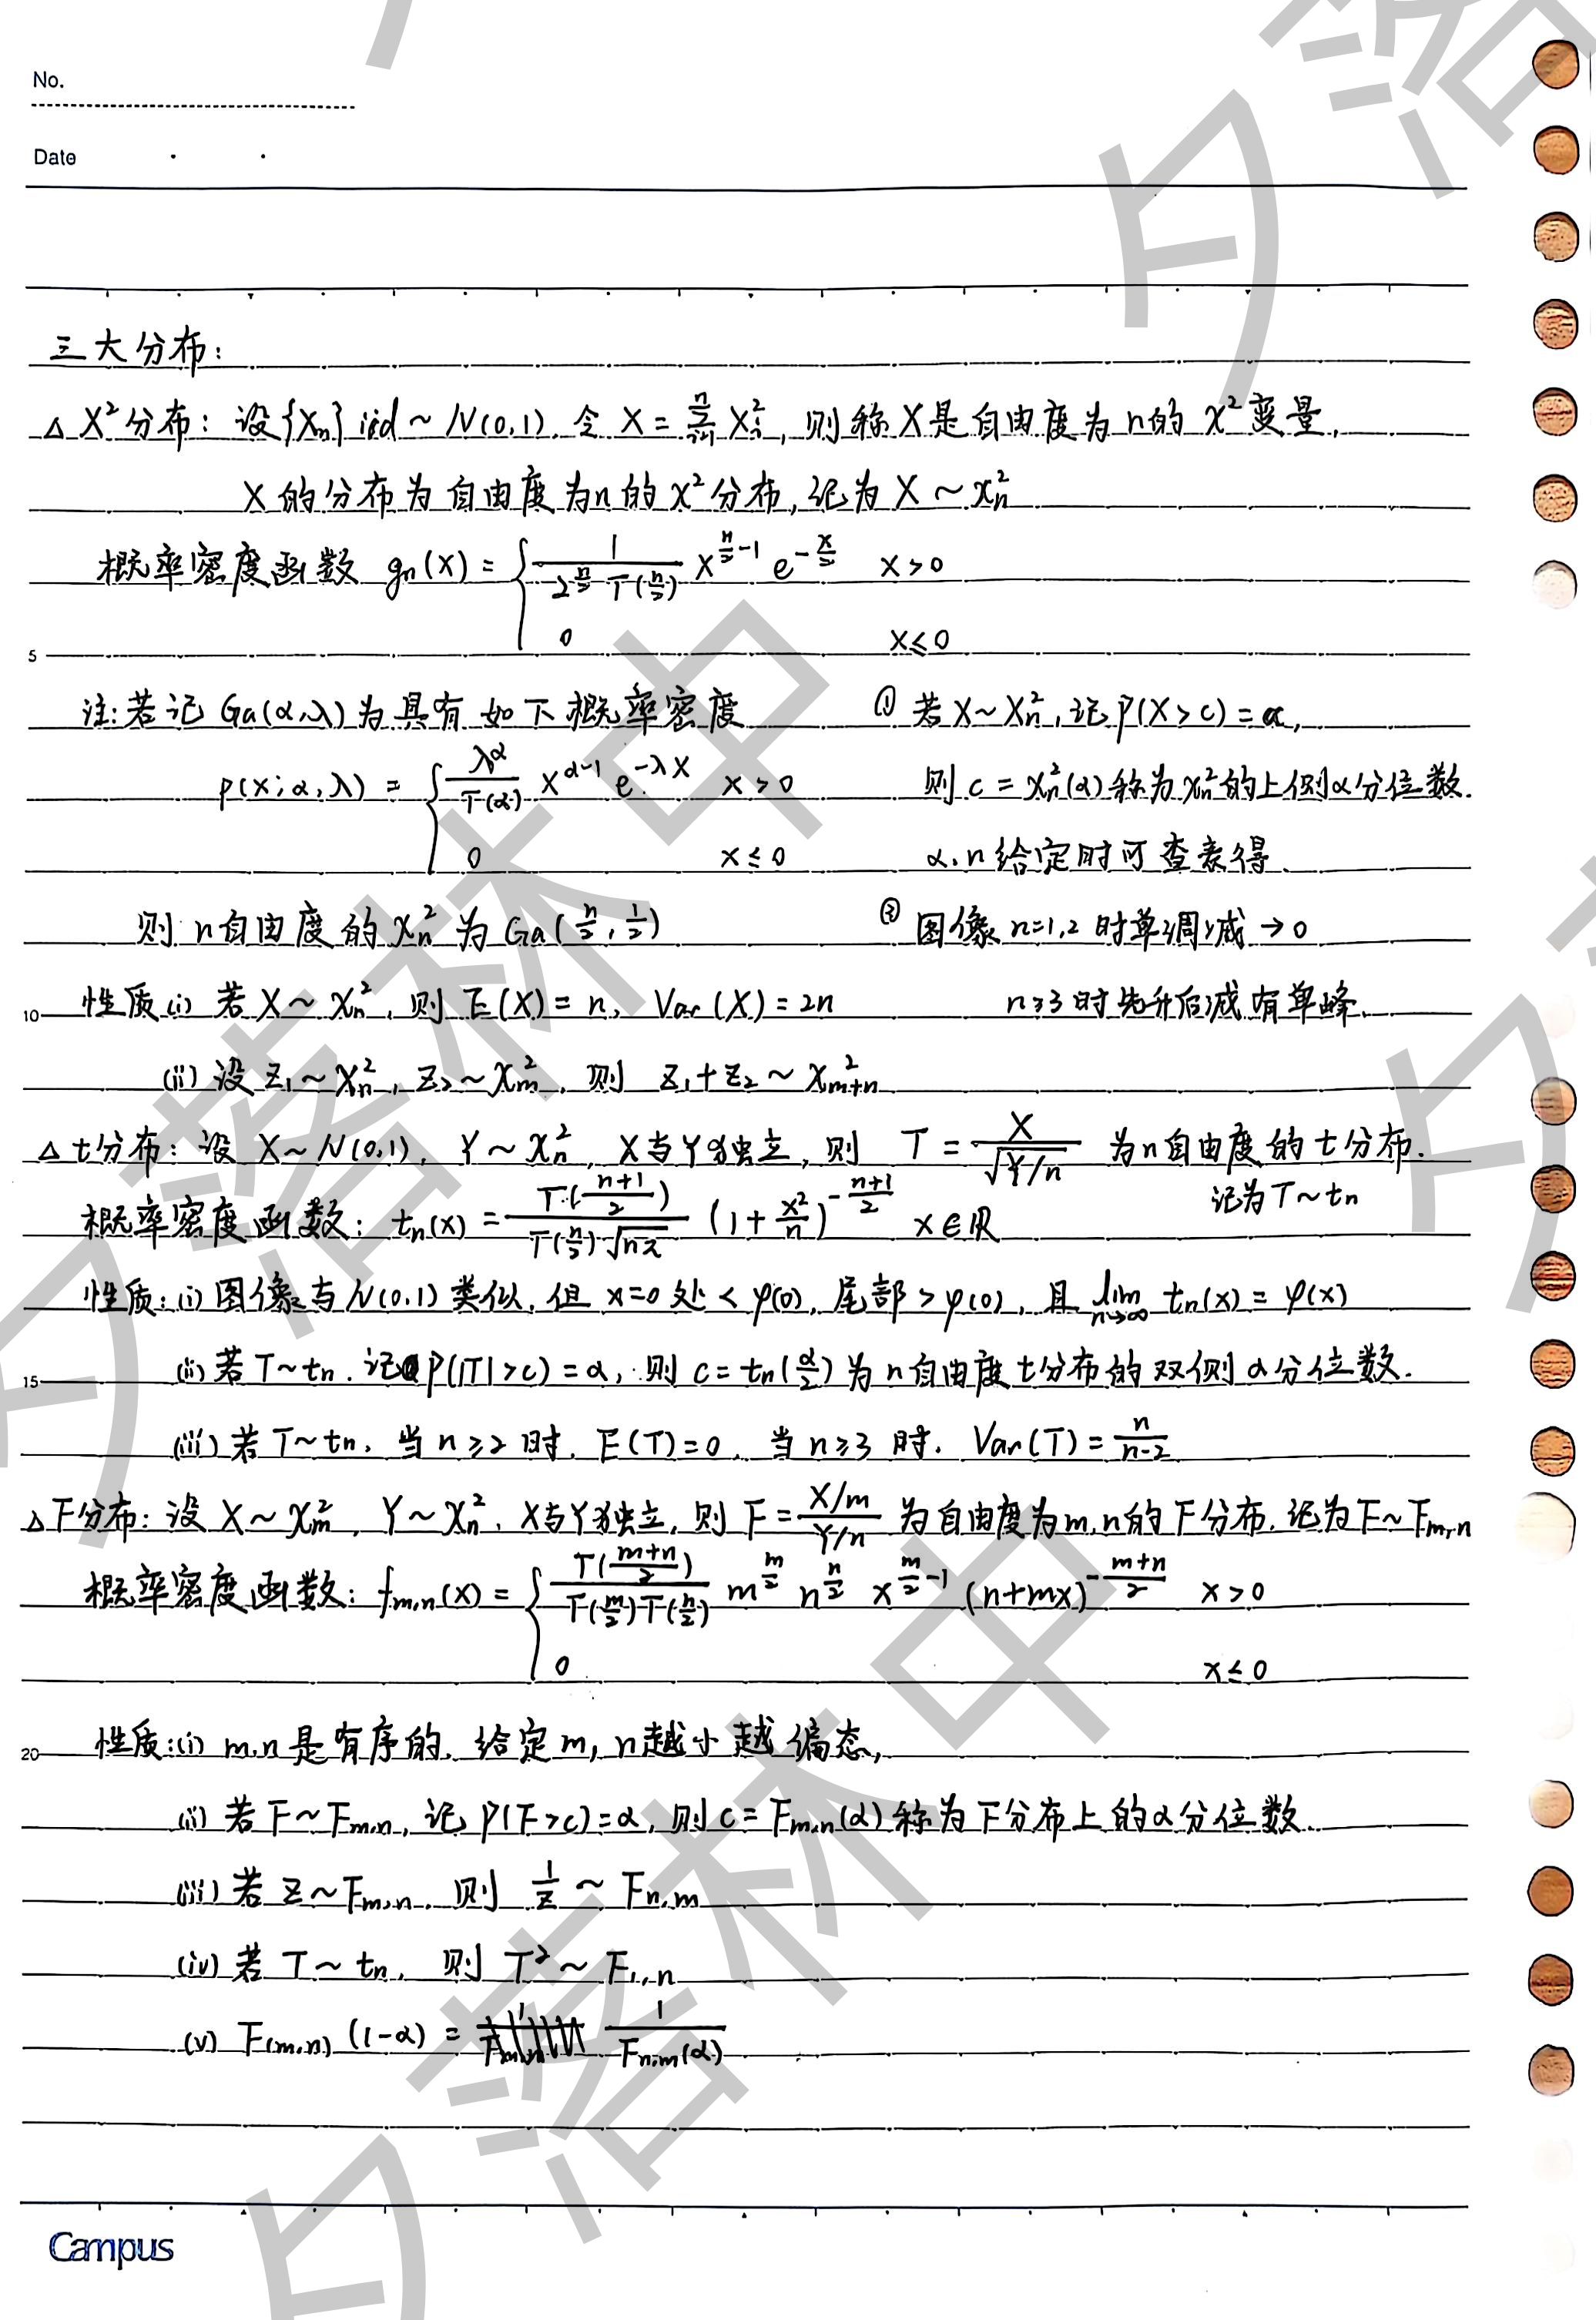 No.
Date
三大分布：
△ χ²分布：设{Xₙ} iid ~ N(0,1). 令 X = Σᵢ₌₁ⁿ Xᵢ², 则称X是自由度为n的 χ²变量,
X的分布为自由度为n的χ²分布, 记为 X ~ χₙ²
概率密度函数 gₙ(x) = { 1/(2^(n/2) Γ(n/2)) x^(n/2-1) e^(-x/2) x>0
0 x≤0
5
注: 若记 Ga(α,λ)为具有如下概率密度
p(x;α,λ) = { λ^α/Γ(α) x^(α-1) e^(-λx) x>0
0 x≤0
则n自由度的χₙ²为Ga(n/2, 1/2)
① 若X~χₙ², 记P(X>c)=α,
则 c=χₙ²(α)称为χₙ²的上侧α分位数.
α,n给定时可查表得.
② 图像 n=1,2 时单调减→0
n≥3时先升后减有单峰.
10
性质(i) 若X~χₙ², 则E(X)=n, Var(X)=2n
(ii) 设Z₁~χₙ², Z₂~χₘ², 则 Z₁+Z₂ ~ χₘ₊ₙ²
△ t分布：设 X~N(0,1), Y~χₙ², X与Y独立, 则 T = X/√(Y/n) 为n自由度的t分布.
记为T~tₙ
概率密度函数：tₙ(x) = Γ((n+1)/2)/(Γ(n/2)√(nπ)) (1+x²/n)^(-(n+1)/2) x∈ℝ
性质：(i) 图像与N(0,1)类似, 但 x=0处<φ(0), 尾部>φ(0), 且 lim n→∞ tₙ(x)=φ(x)
15
(ii) 若T~tₙ. 记P(|T|>c)=α, 则 c=tₙ(α/2)为n自由度t分布的双侧α分位数.
(iii) 若T~tₙ, 当n≥2时, E(T)=0, 当n≥3时, Var(T)=n/(n-2)
△ F分布：设 X~χₘ², Y~χₙ², X与Y独立, 则 F = (X/m)/(Y/n) 为自由度为m,n的F分布, 记为F~F_{m,n}
概率密度函数：f_{m,n}(x) = { Γ((m+n)/2)/(Γ(m/2)Γ(n/2)) m^(m/2) n^(n/2) x^(m/2-1) (n+mx)^(-(m+n)/2) x>0
0 x≤0
20
性质：(i) m,n是有序的, 给定m, n越小越偏态,
(ii) 若F~F_{m,n}, 记P(F>c)=α, 则c=F_{m,n}(α)称为F分布上的α分位数.
(iii) 若 Z~F_{m,n}, 则 1/Z ~ F_{n,m}
(iv) 若 T~tₙ, 则 T²~F_{1,n}
(v) F_{(m,n)}(1-α) = 1/F_{n,m}(α)
Campus
夕落林中
夕落林中